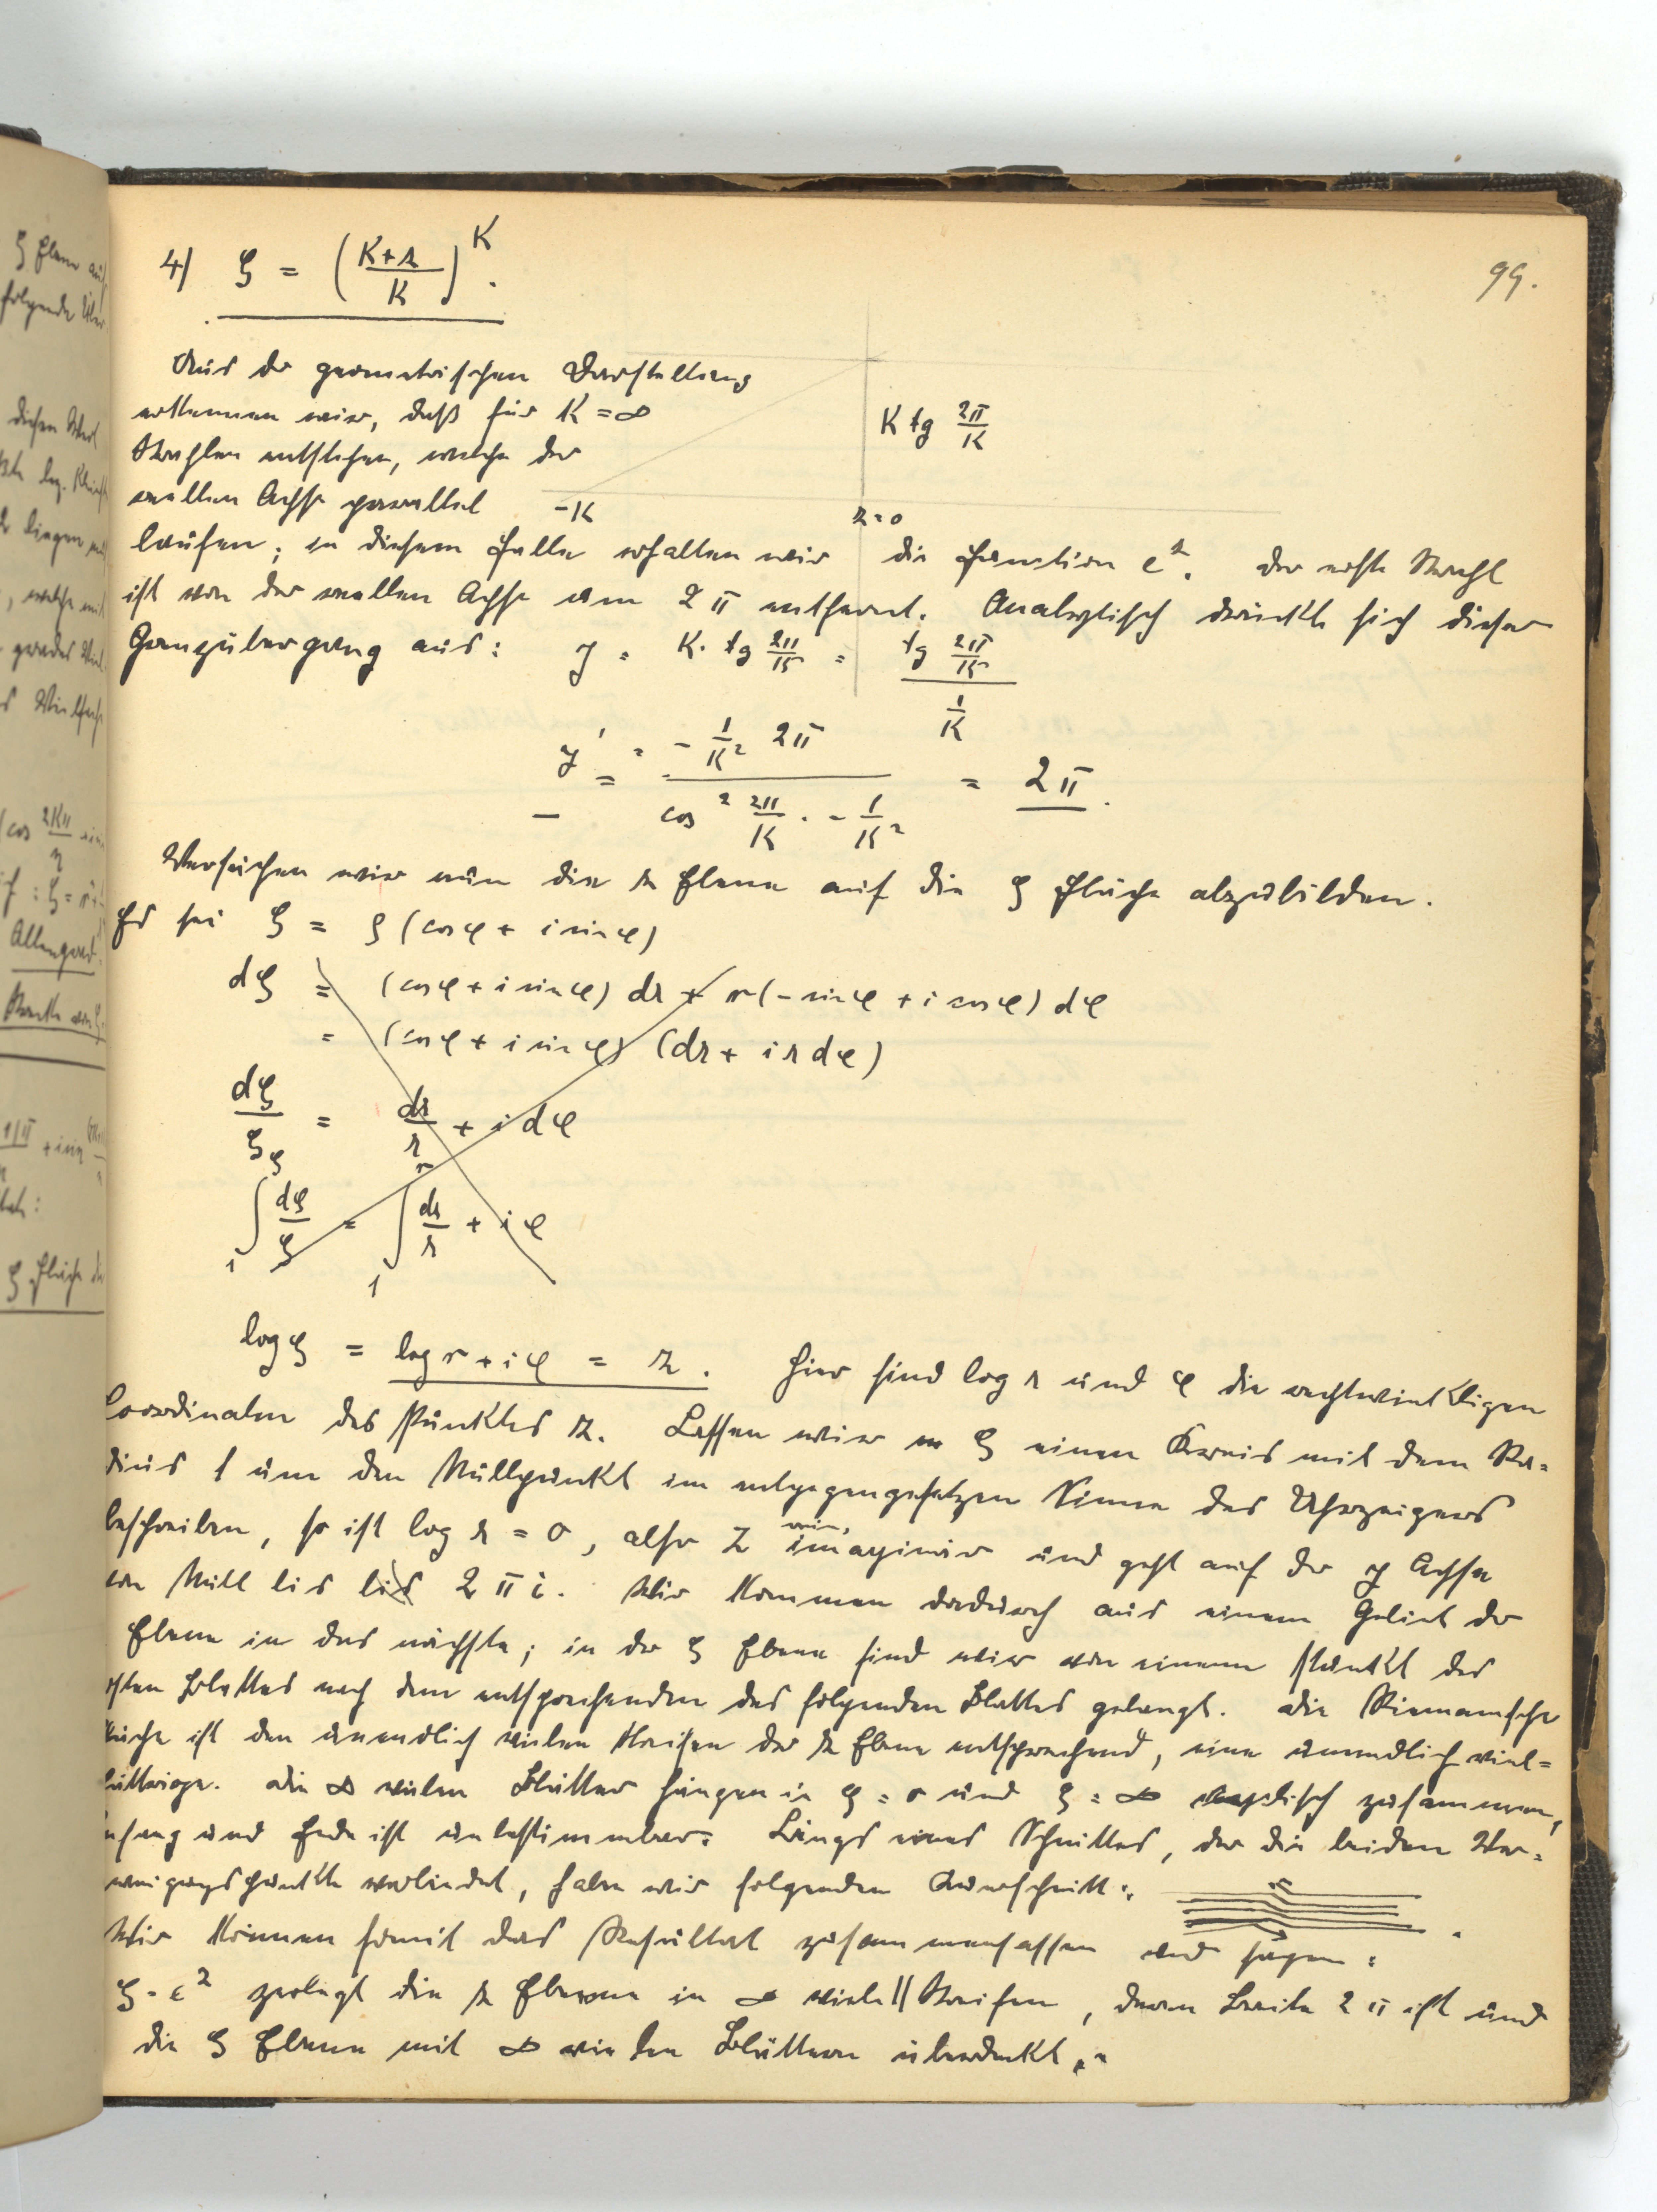 99.
4) ζ = (K+z / K)^K.
Aus der geometrischen Darstellung
erkennen wir, daß für K = ∞
Strahlen entstehen, welche der
reellen Achse parallel
K tg 2π/K
-K z=0
laufen; in diesem Falle erhalten wir die Function e^z. Der erste Strahl
ist von der reellen Achse um 2π entfernt. Analytisch drückt sich dieser
Grenzübergang aus: y = K. tg 2π/K = tg 2π/K / 1/K
y' = - 1/K² 2π / cos² 2π/K . - 1/K² = 2π.
Versuchen wir nun die z Ebene auf die ζ Fläche abzubilden.
Es sei ζ = ρ (cos φ + i sin φ)
dζ = (cos φ + i sin φ) dr + r (- sin φ + i cos φ) dφ
= (cos φ + i sin φ) (dr + i r dφ)
dζ/ζ = dr/r + i dφ
∫₁^ζ dζ/ζ = ∫₁^r dr/r + i φ
log ζ = log r + i φ = z. Hier sind log r und φ die rechtwinkligen
Coordinaten des Punktes z. Lassen wir ζ einen Kreis mit dem Ra=
dius 1 um den Nullpunkt im entgegengesetzen Sinne des Uhrzeigers
beschreiben, so ist log r = 0, also z rein imaginär und geht auf der y Achse
von Null bis bis 2πi. Wir kommen dadurch aus einem Gebiet der
Ebene in das nächste; in der ζ Ebene sind wir von einem Punkt des
ersten Blattes nach dem entsprechenden des folgenden Blattes gelangt. Die Riemansche
Fläche ist den unendlich vielen Streifen der z Ebene entsprechend, eine unendlich viel=
blättrige. Die ∞ vielen Blätter hängen in ζ = 0 und ζ = ∞ zusammen,
Anfang und Ende ist unbestimmbar. Längs eines Schnittes, der die beiden Ver=
zweigungspunkte verbindet, haben wir folgenden Querschnitt:
Wir können somit das Resultat zusammenfassen und sagen:
ζ = e^z zerlegt die z Ebene in ∞ viele || Streifen, deren Breite 2π ist und
die ζ Ebene mit ∞ vielen Blättern überdeckt."